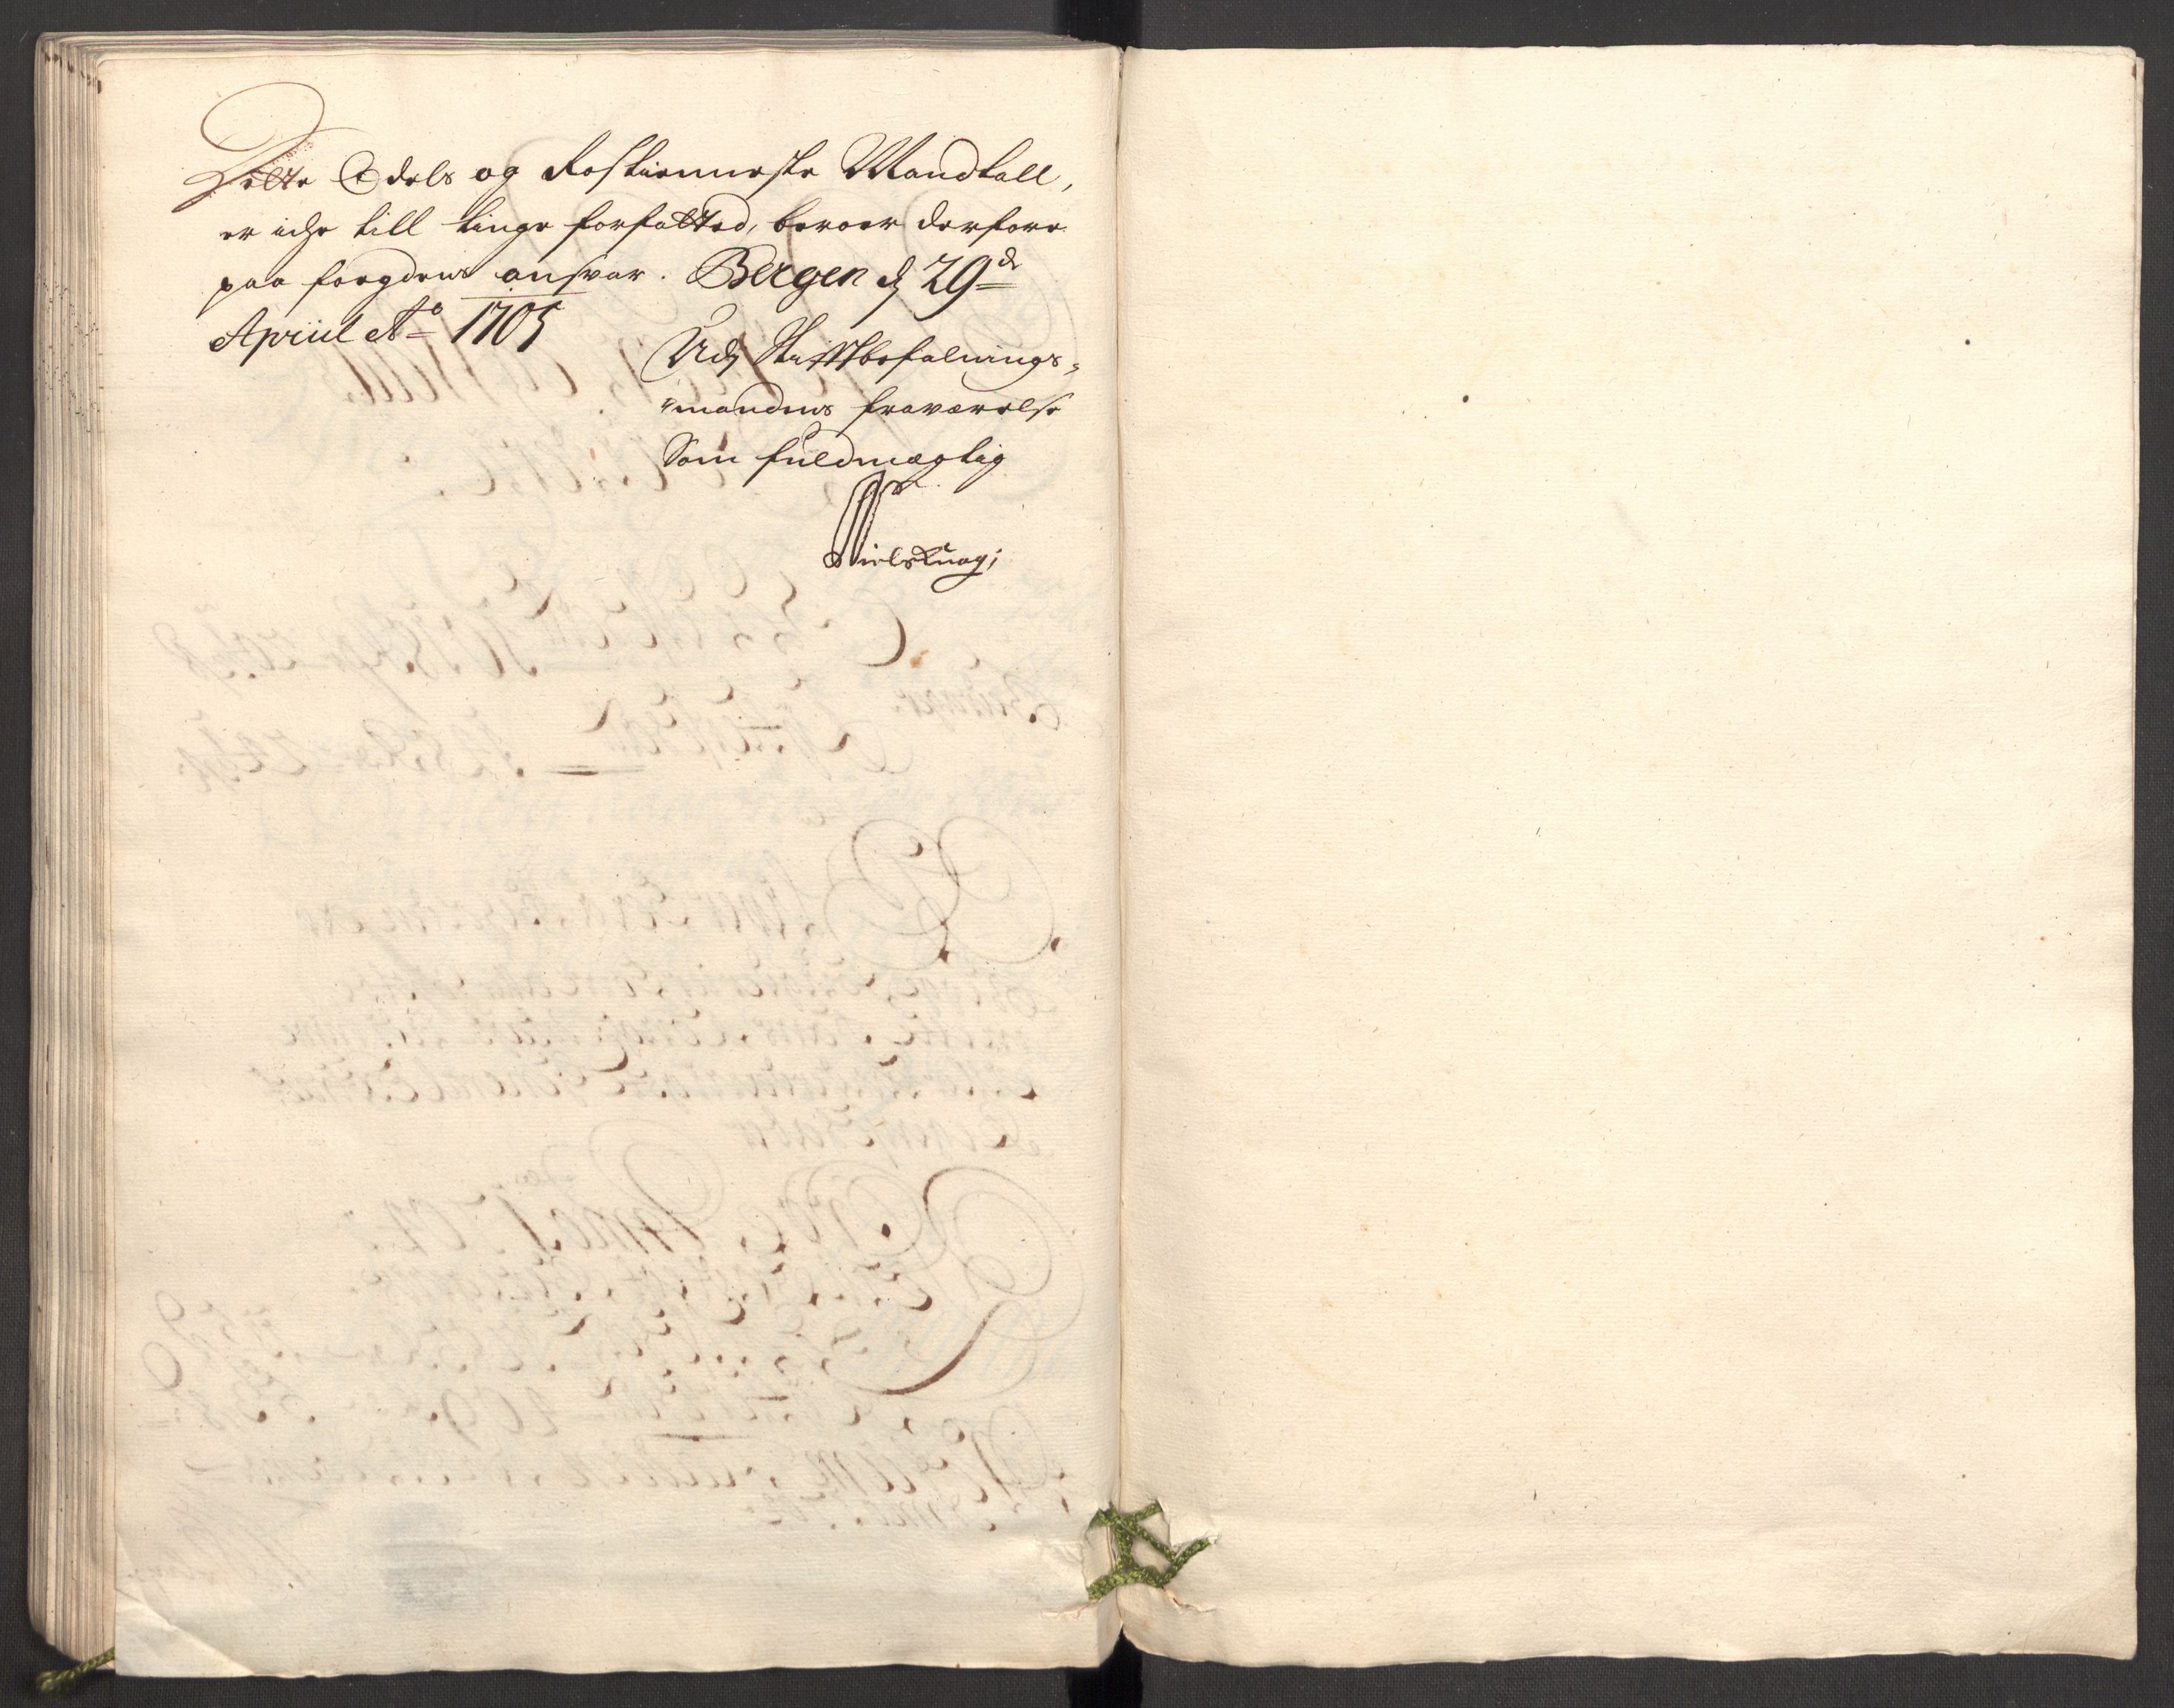 Dette Odels og Rostienneste Mandtall,
er iche till tinge forfatted, beroer derfore
paa foegdens ansvar. Bergen d 29de
Apriil Ao 1705
Udj Stiftbefalnings-
mandens fraværelse
Som fuldmægtig
Niels Knag;